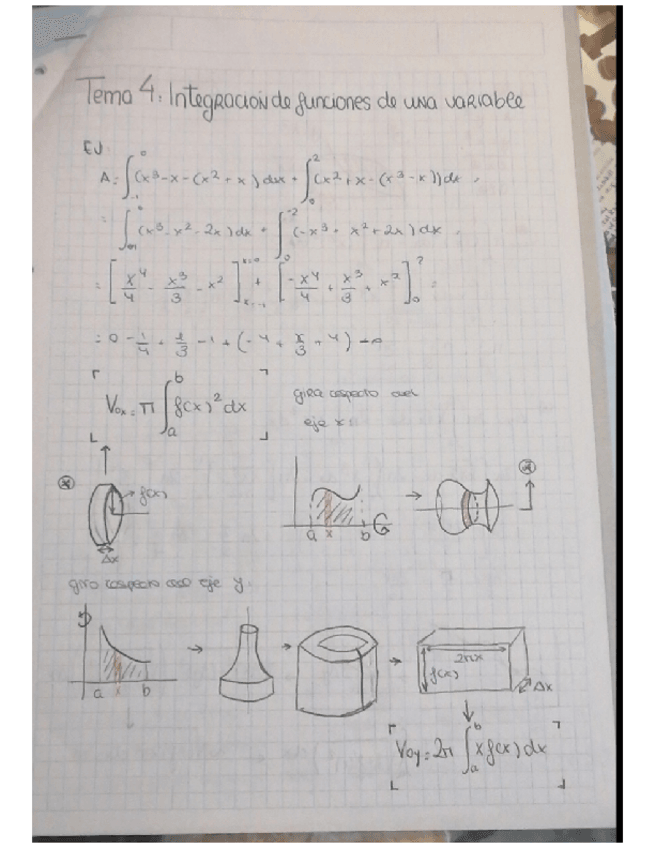 Tema 4: Integración de funciones de una variable
EJ:
A = ∫₋₁⁰ (x³-x-(x²+x)) dx + ∫₀² (x²+x-(x³-x)) dx =
= ∫₋₁⁰ (x³-x²-2x) dx + ∫₀² (-x³+x²+2x) dx =
= [x⁴/4 - x³/3 - x²] + [-x⁴/4 + x³/3 + x²]₀ =
= 0 - 1/4 + 1/3 - 1 + (-4 + /3 + 4) - 0
Vox = π ∫ₐᵇ f(x)² dx
gira respecto del
eje x
f(x)
Δx
a x b
giro respecto eje y
a x b
2πx
f(x)
Δx
Voy = 2π ∫ₐᵇ x f(x) dx